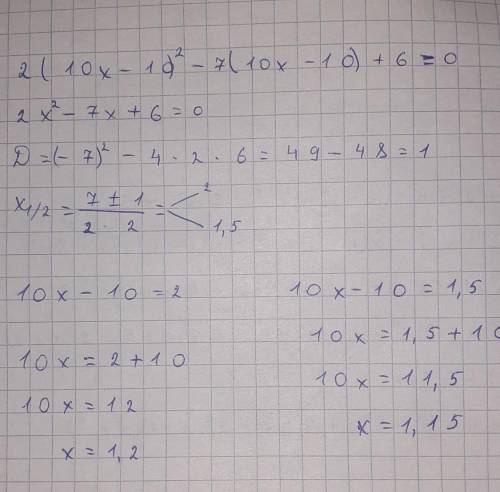 2(10x-10)² - 7(10x-10) + 6 = 0
2x² - 7x + 6 = 0
D = (-7)² - 4 · 2 · 6 = 49 - 48 = 1
x1/2 = (7 ± 1)/(2 · 2) = < 2
1,5
10x - 10 = 2
10x = 2 + 10
10x = 12
x = 1,2
10x - 10 = 1,5
10x = 1,5 + 10
10x = 11,5
x = 1,15